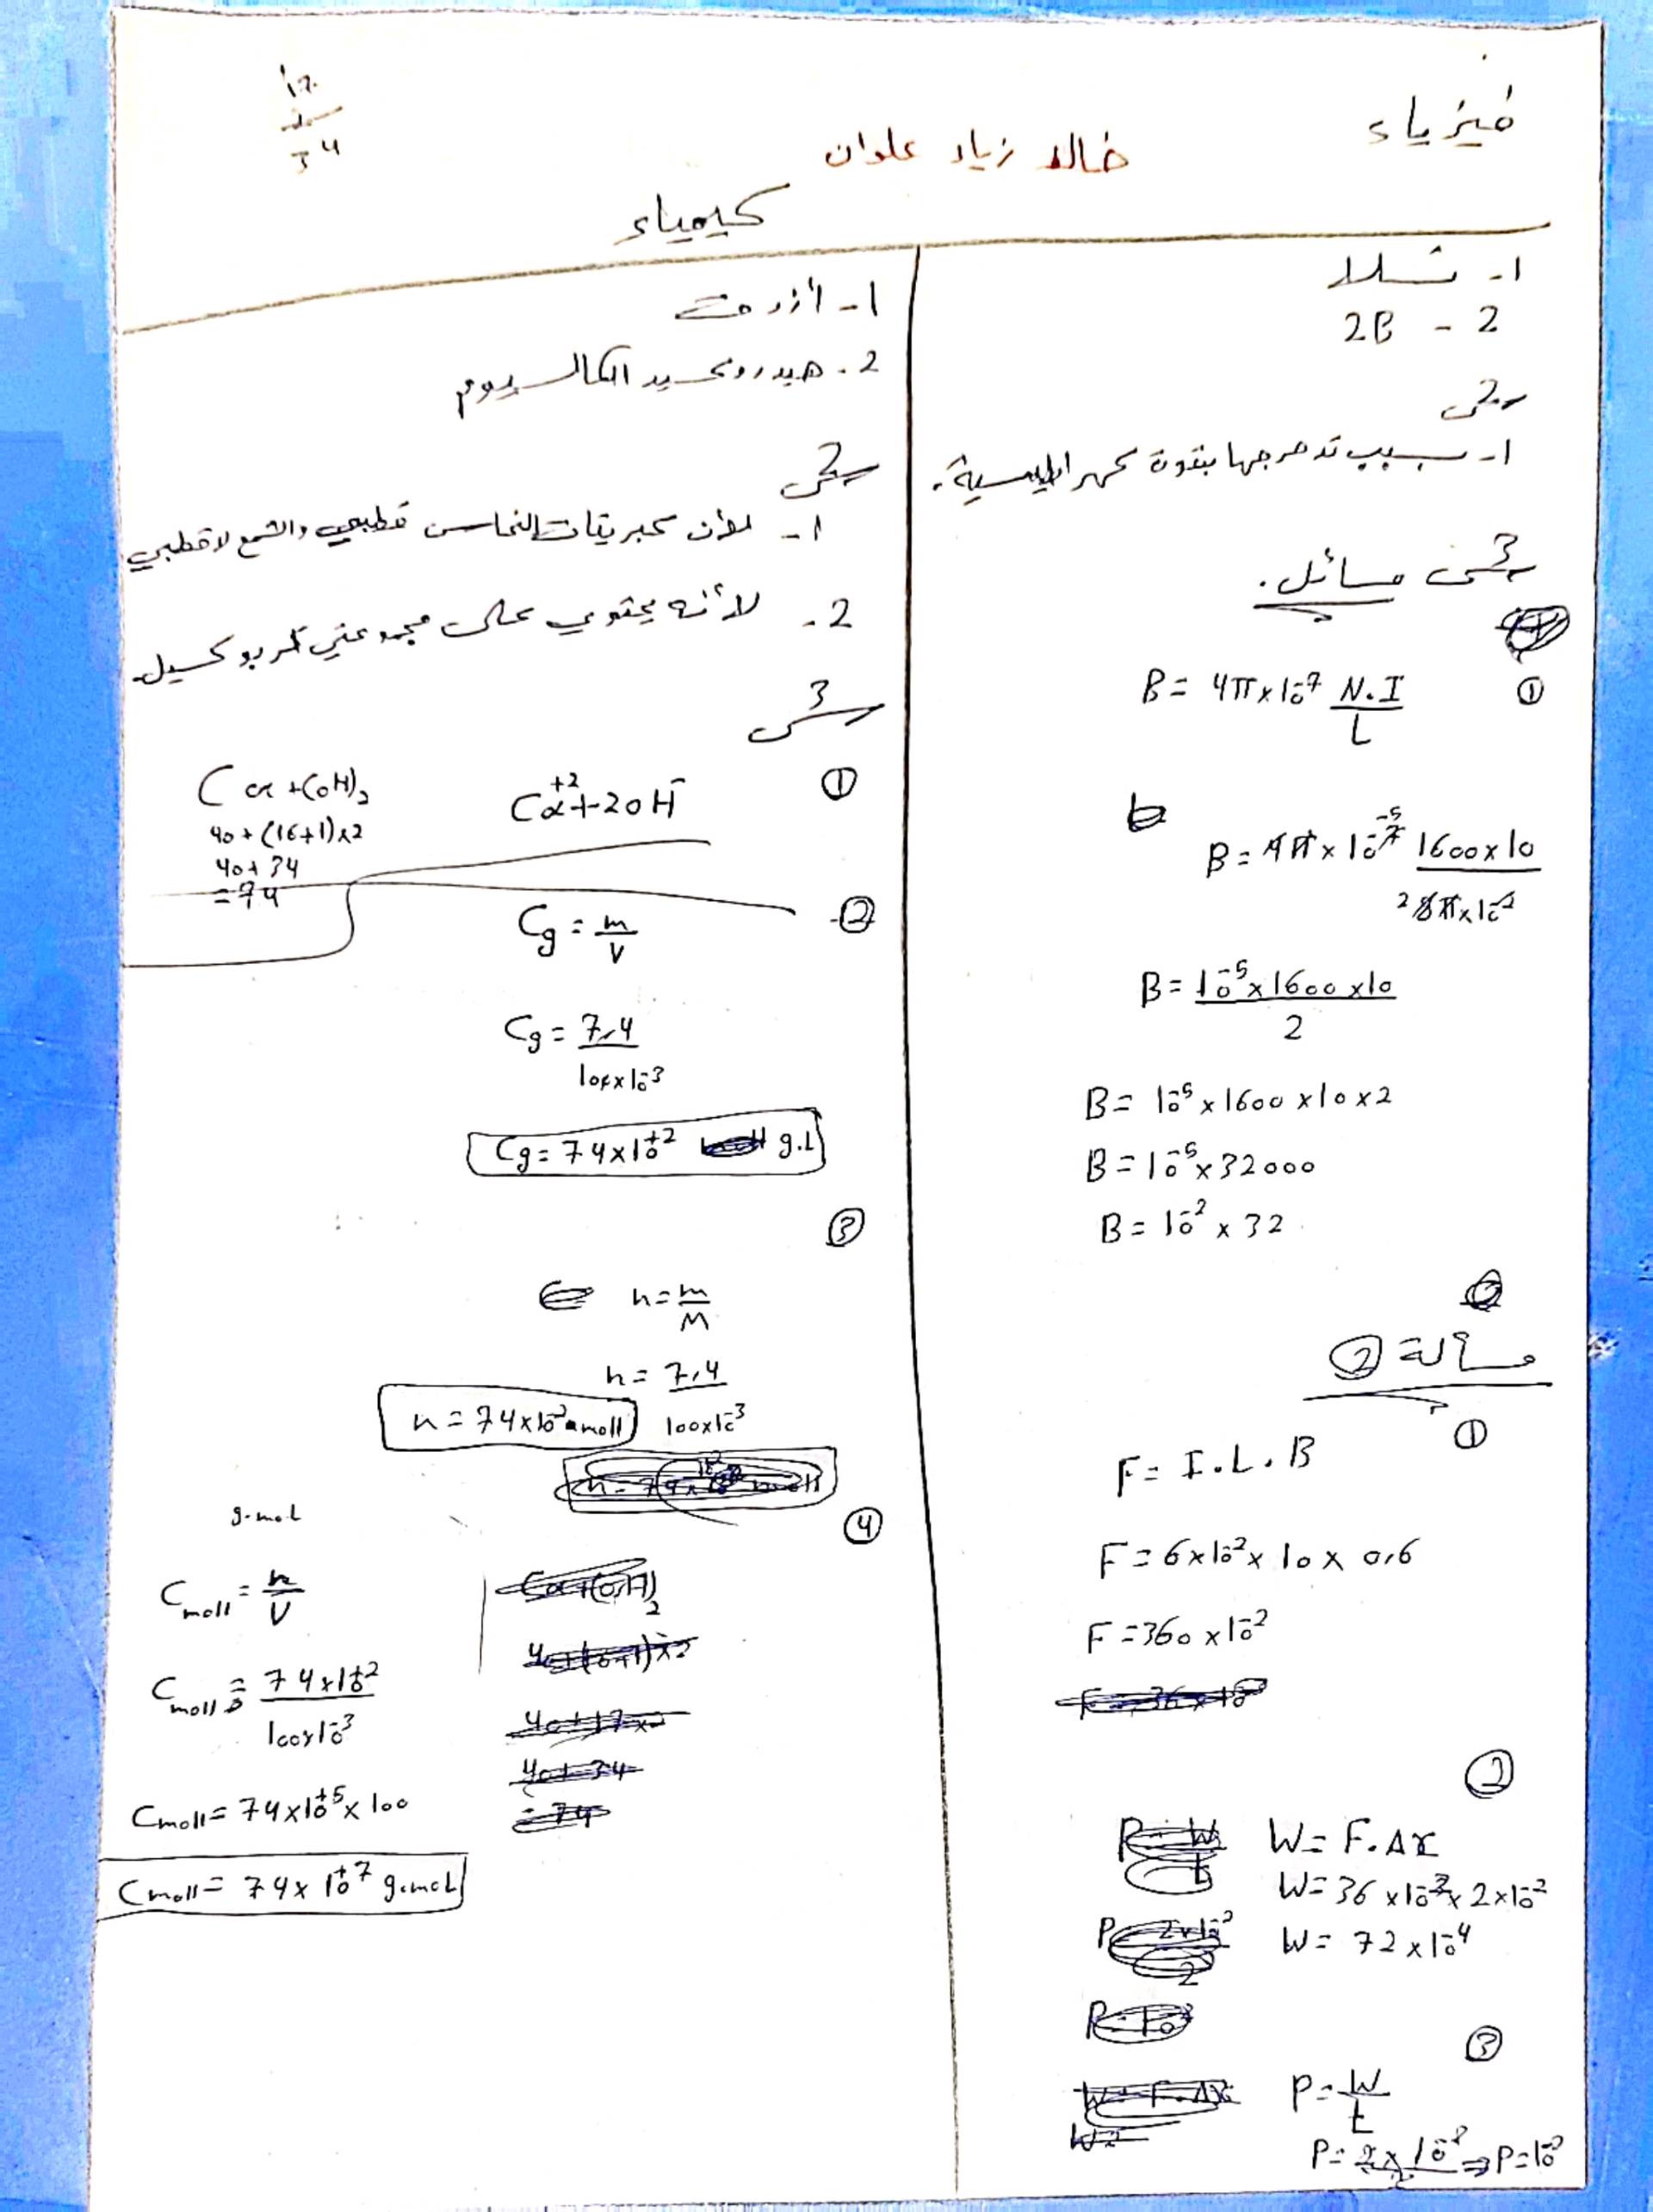 فيزياء
خالد زياد علوان
كيمياء
1- تسلا
2 - 2B
س2
1- بسبب تدحرجها بقوة كهرطيسية.
س3 مسائل.
①
B = 4π×10⁻⁷ N.I/L
B = 4π×10⁻⁷ ⁻⁵ 1600×10 / 2 8π×10⁻²
B = 10⁻⁵×1600×10 / 2
B = 10⁻⁵×1600×10×2
B = 10⁻⁵×32000
B = 10⁻²×32
مسألة ②
①
F = I.L.B
F = 6×10⁻²×10×0,6
F = 360×10⁻²
②
W = F.Δx
W = 36×10⁻²×2×10⁻²
W = 72×10⁻⁴
③
P = W/t
1- أزرق
2- هيدروكسيد الكالسيوم
س2
1- لأن كبريتات النحاس قطبي والشمع لا قطبي
2- لأنه يحتوي على مجموعتي كربوكسيل.
س3
①
Ca⁺²+2OH⁻
Ca+(OH)₂
40+(16+1)×2
40+34
=74
②
Cg = m/V
Cg = 7,4 / 100×10⁻³
Cg = 74×10⁺² g.L
③
n = m/M
n = 7,4 / 100×10⁻³
④
g.mol
Cmoll = n/V
Cmoll = 74×10⁺² / 100×10⁻³
Cmoll = 74×10⁺⁵×100
Cmoll = 74×10⁺⁷ g.mol